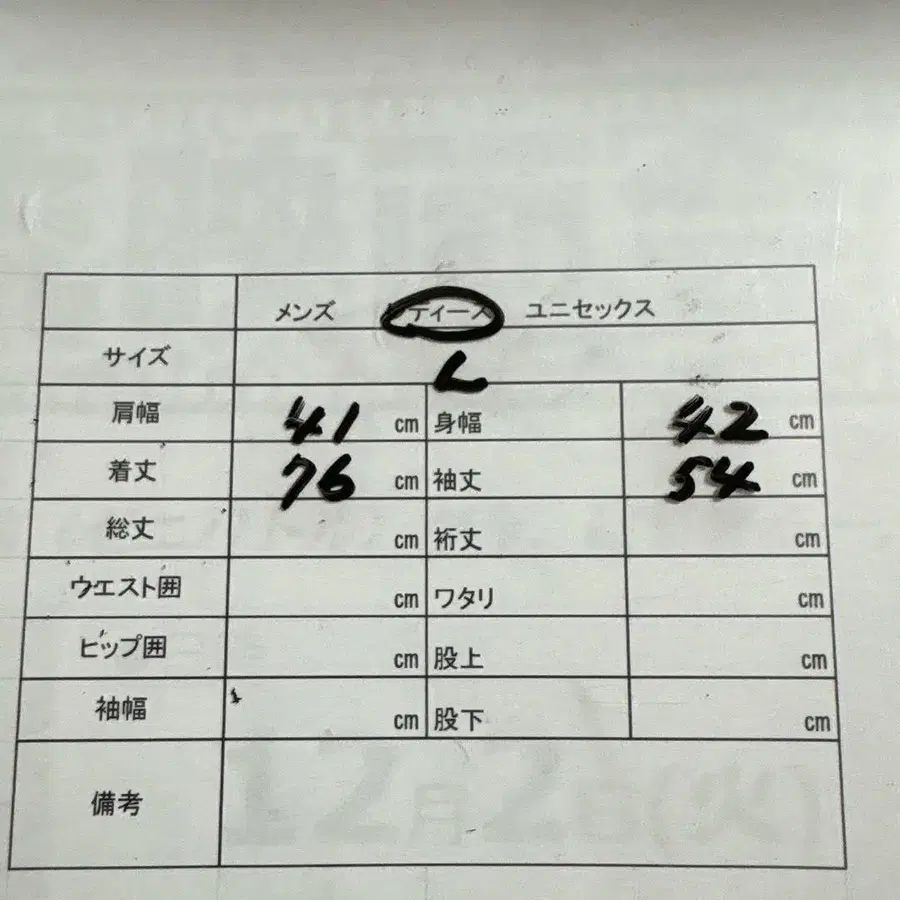 メンズ レディース ユニセックス
サイズ L
肩幅 41 cm 身幅 42 cm
着丈 76 cm 袖丈 54 cm
総丈 cm 裄丈 cm
ウエスト囲 cm ワタリ cm
ヒップ囲 cm 股上 cm
袖幅 cm 股下 cm
備考